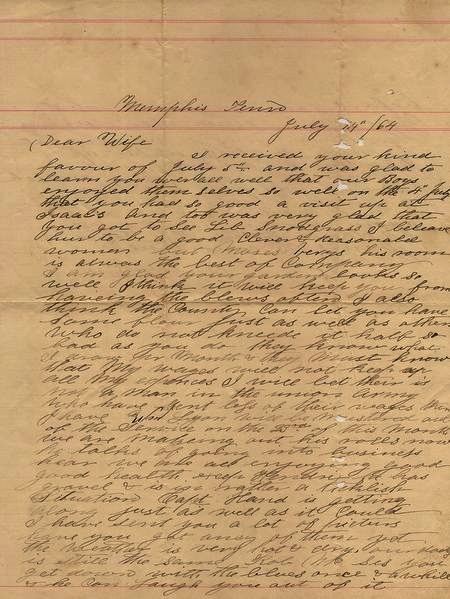 Memphis Tenn
July 14" /64
Dear Wife
I received your kind
favour of July 5th and was glad to
learn you were well that our boys
enjoyed themselves so well on the 4th July
that you had so good a visit up at
Isaacs and too was very glad that
you got to See Lib Snodgrass I beleave
hur to be a good Clever & Reasonable
women but
is alwas the best of Company
I am glad your looks so
well I think it will keep you from
haveing the blews often I also
think the County Can let you have
Some flour just as well as others
Who do not knede it half so
bad as you do they know what
I draw per Month & they Must know
that My wages will not keep up
all My expences I will bet their is
not a Man in the union Army
who has Sent of their wages than
I have Wm Lynn will be
of the Service on the 23rd of this Month
we are Makeing out his rolls now
he talks of going into business
hear we are all enjoying good
good health
gravel & is in rather a ticklish
Situation Capt Hand is getting
along just as well as it Could
I have sent you a lot of
have you got any of them yet
the weather is very hot & dry our
is still the same Mc Ses you
get with the blues once & awhile
& he Can laugh you out of it